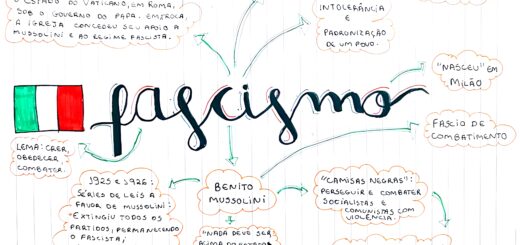 O ESTADO DO VATICANO, EM ROMA,
SOB O GOVERNO DO PAPA. EM TROCA,
A IGREJA CONCEDEU SEU APOIO A
MUSSOLINI E AO REGIME FASCISTA.
INTOLERÂNCIA
E
PADRONIZAÇÃO
DE UM POVO.
"NASCEU" EM
MILÃO
fascismo
FASCIO DE
COMBATIMENTO
LEMA: CRER,
OBEDECER
COMBATER.
1925 E 1926:
SÉRIES DE LEIS A
FAVOR DE MUSSOLINI:
"EXTINGIU TODOS OS
PARTIDOS, PERMANECENDO
O FASCISTA;
BENITO
MUSSOLINI
"NADA DEVE SER
ACIMA DO ESTADO
"CAMISAS NEGRAS":
PERSEGUIR E COMBATER
SOCIALISTAS E
COMUNISTAS COM
VIOLÊNCIA.